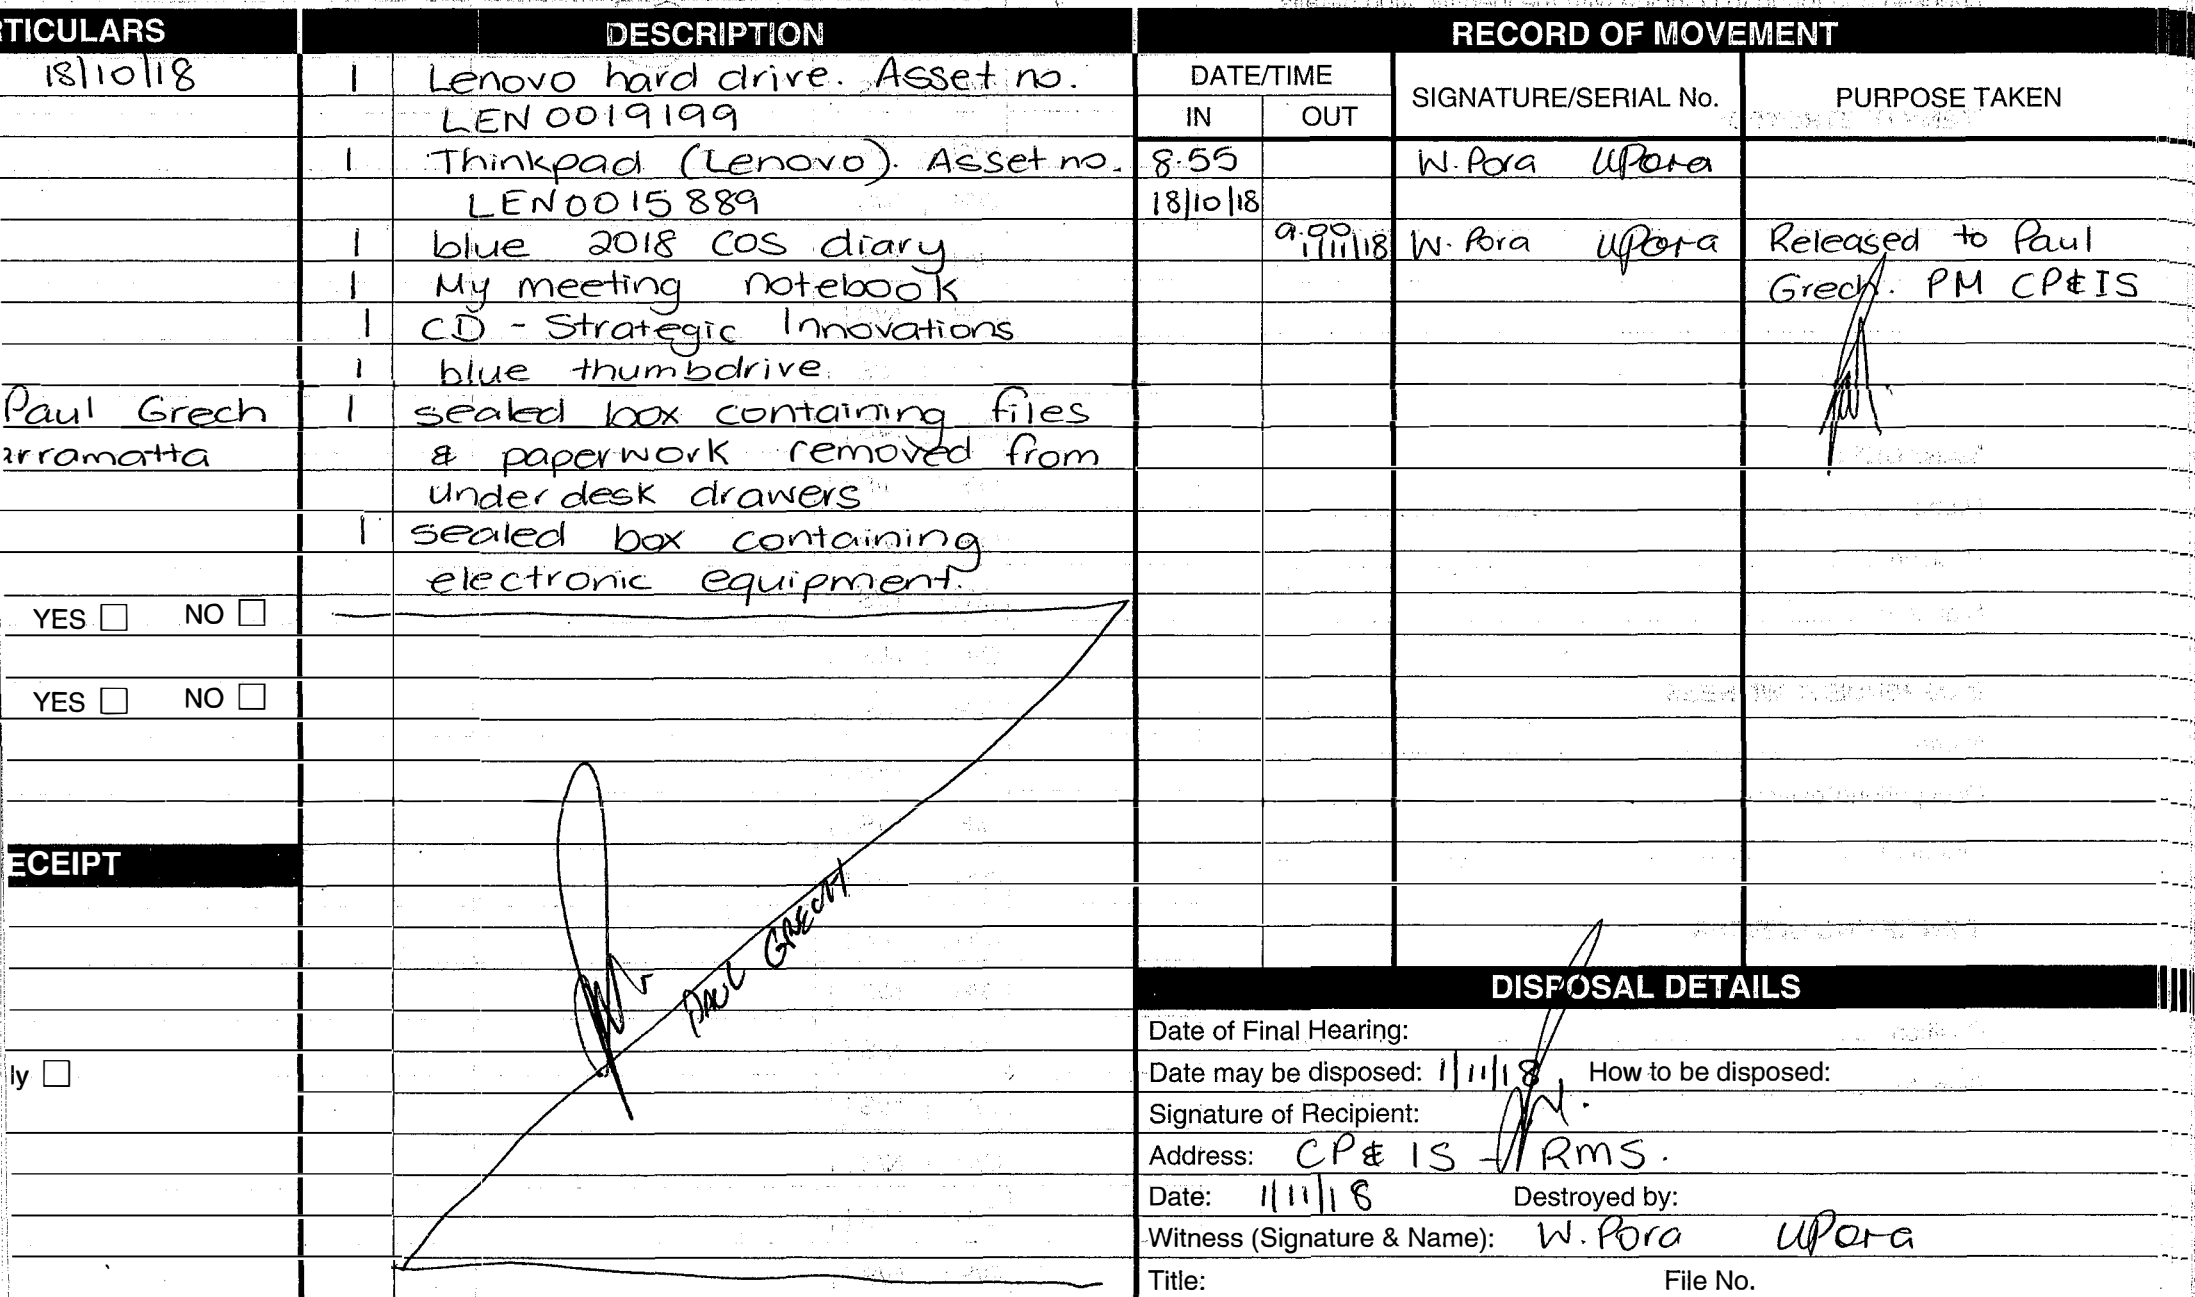 RTICULARS
18/10/18
Paul Grech
arramatta
YES NO
YES NO
ECEIPT
ly
DESCRIPTION
1 Lenovo hard drive. Asset no.
LEN 0019199
1 Thinkpad (Lenovo). Asset no.
LEN0015889
1 blue 2018 COS diary
1 My meeting notebook
1 CD - Strategic Innovations
1 blue thumbdrive
1 sealed box containing files
& paperwork removed from
under desk drawers
1 sealed box containing
electronic equipment.
PAUL GRECH
RECORD OF MOVEMENT
DATE/TIME SIGNATURE/SERIAL No. PURPOSE TAKEN
IN OUT
8.55 W. Pora WPora
18/10/18
9.00 1/11/18 W. Pora WPora Released to Paul
Grech. PM CP&IS
DISPOSAL DETAILS
Date of Final Hearing:
Date may be disposed: 1/11/18 How to be disposed:
Signature of Recipient:
Address: CP& IS - RMS.
Date: 1/11/18 Destroyed by:
Witness (Signature & Name): W. Pora WPora
Title: File No.